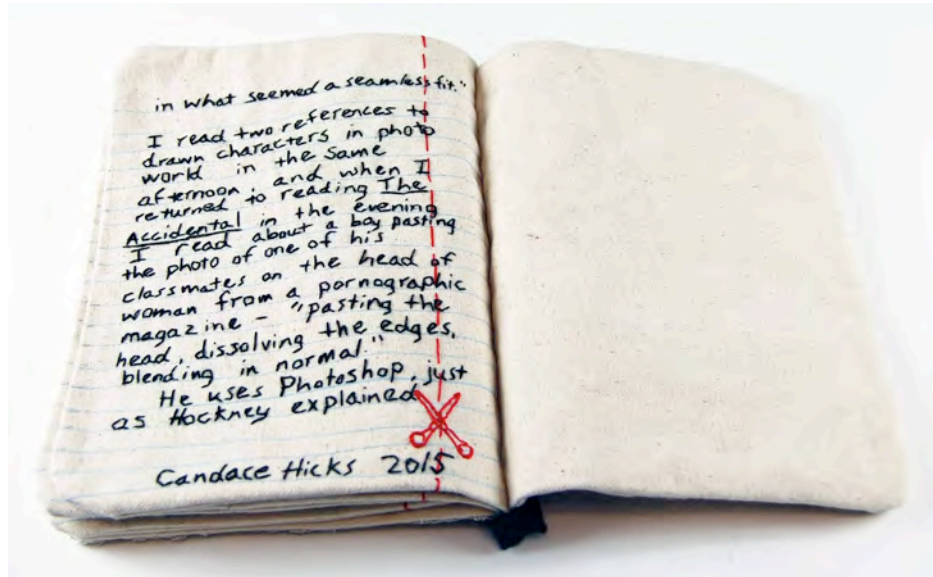 in what seemed a seamless fit."
I read two references to
drawn characters in photo
world in the same
afternoon, and when I
returned to reading The
Accidental in the evening
I read about a boy pasting
the photo of one of his
classmates on the head of
woman from a pornographic
magazine - "pasting the
head, dissolving the edges,
blending in normal."
He uses Photoshop, just
as Hockney explained.
Candace Hicks 2015